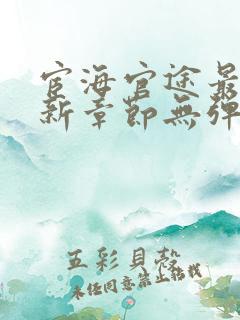 宦海官途最
新章節無彈
五彩貝殼
未經同意禁止轉載